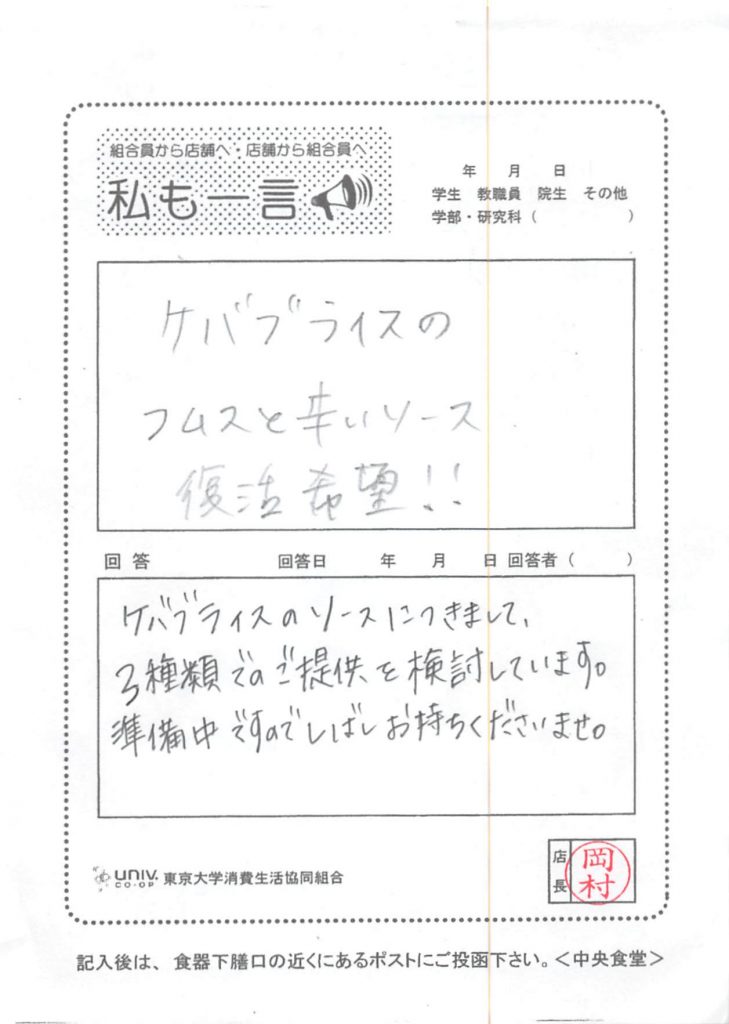 組合員から店舗へ・店舗から組合員へ
私も一言
年 月 日
学生 教職員 院生 その他
学部・研究科（ ）
ケバブライスの
フムスと辛いソース
復活希望!!
回答 回答日 年 月 日 回答者（ ）
ケバブライスのソースにつきまして、
3種類でのご提供を検討しています。
準備中ですのでしばしお持ちくださいませ。
店長
岡村
UNIV.
CO-OP
東京大学消費生活協同組合
記入後は、食器下膳口の近くにあるポストにご投函下さい。＜中央食堂＞